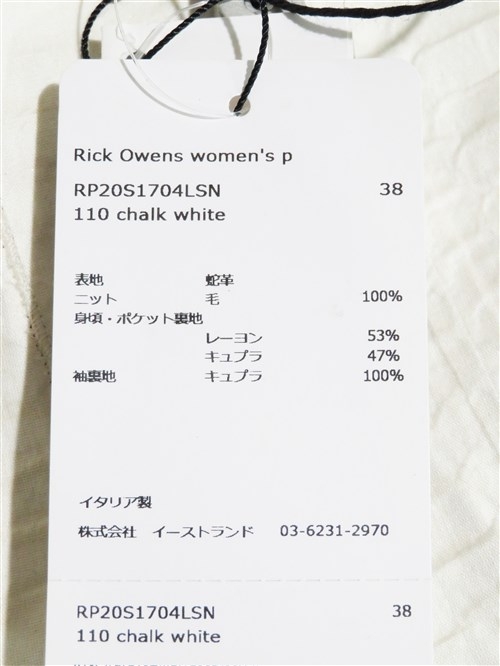 Rick Owens women's p
RP20S1704LSN 38
110 chalk white
表地 蛇革
ニット 毛 100%
身頃・ポケット裏地
レーヨン 53%
キュプラ 47%
袖裏地 キュプラ 100%
イタリア製
株式会社 イーストランド 03-6231-2970
RP20S1704LSN 38
110 chalk white